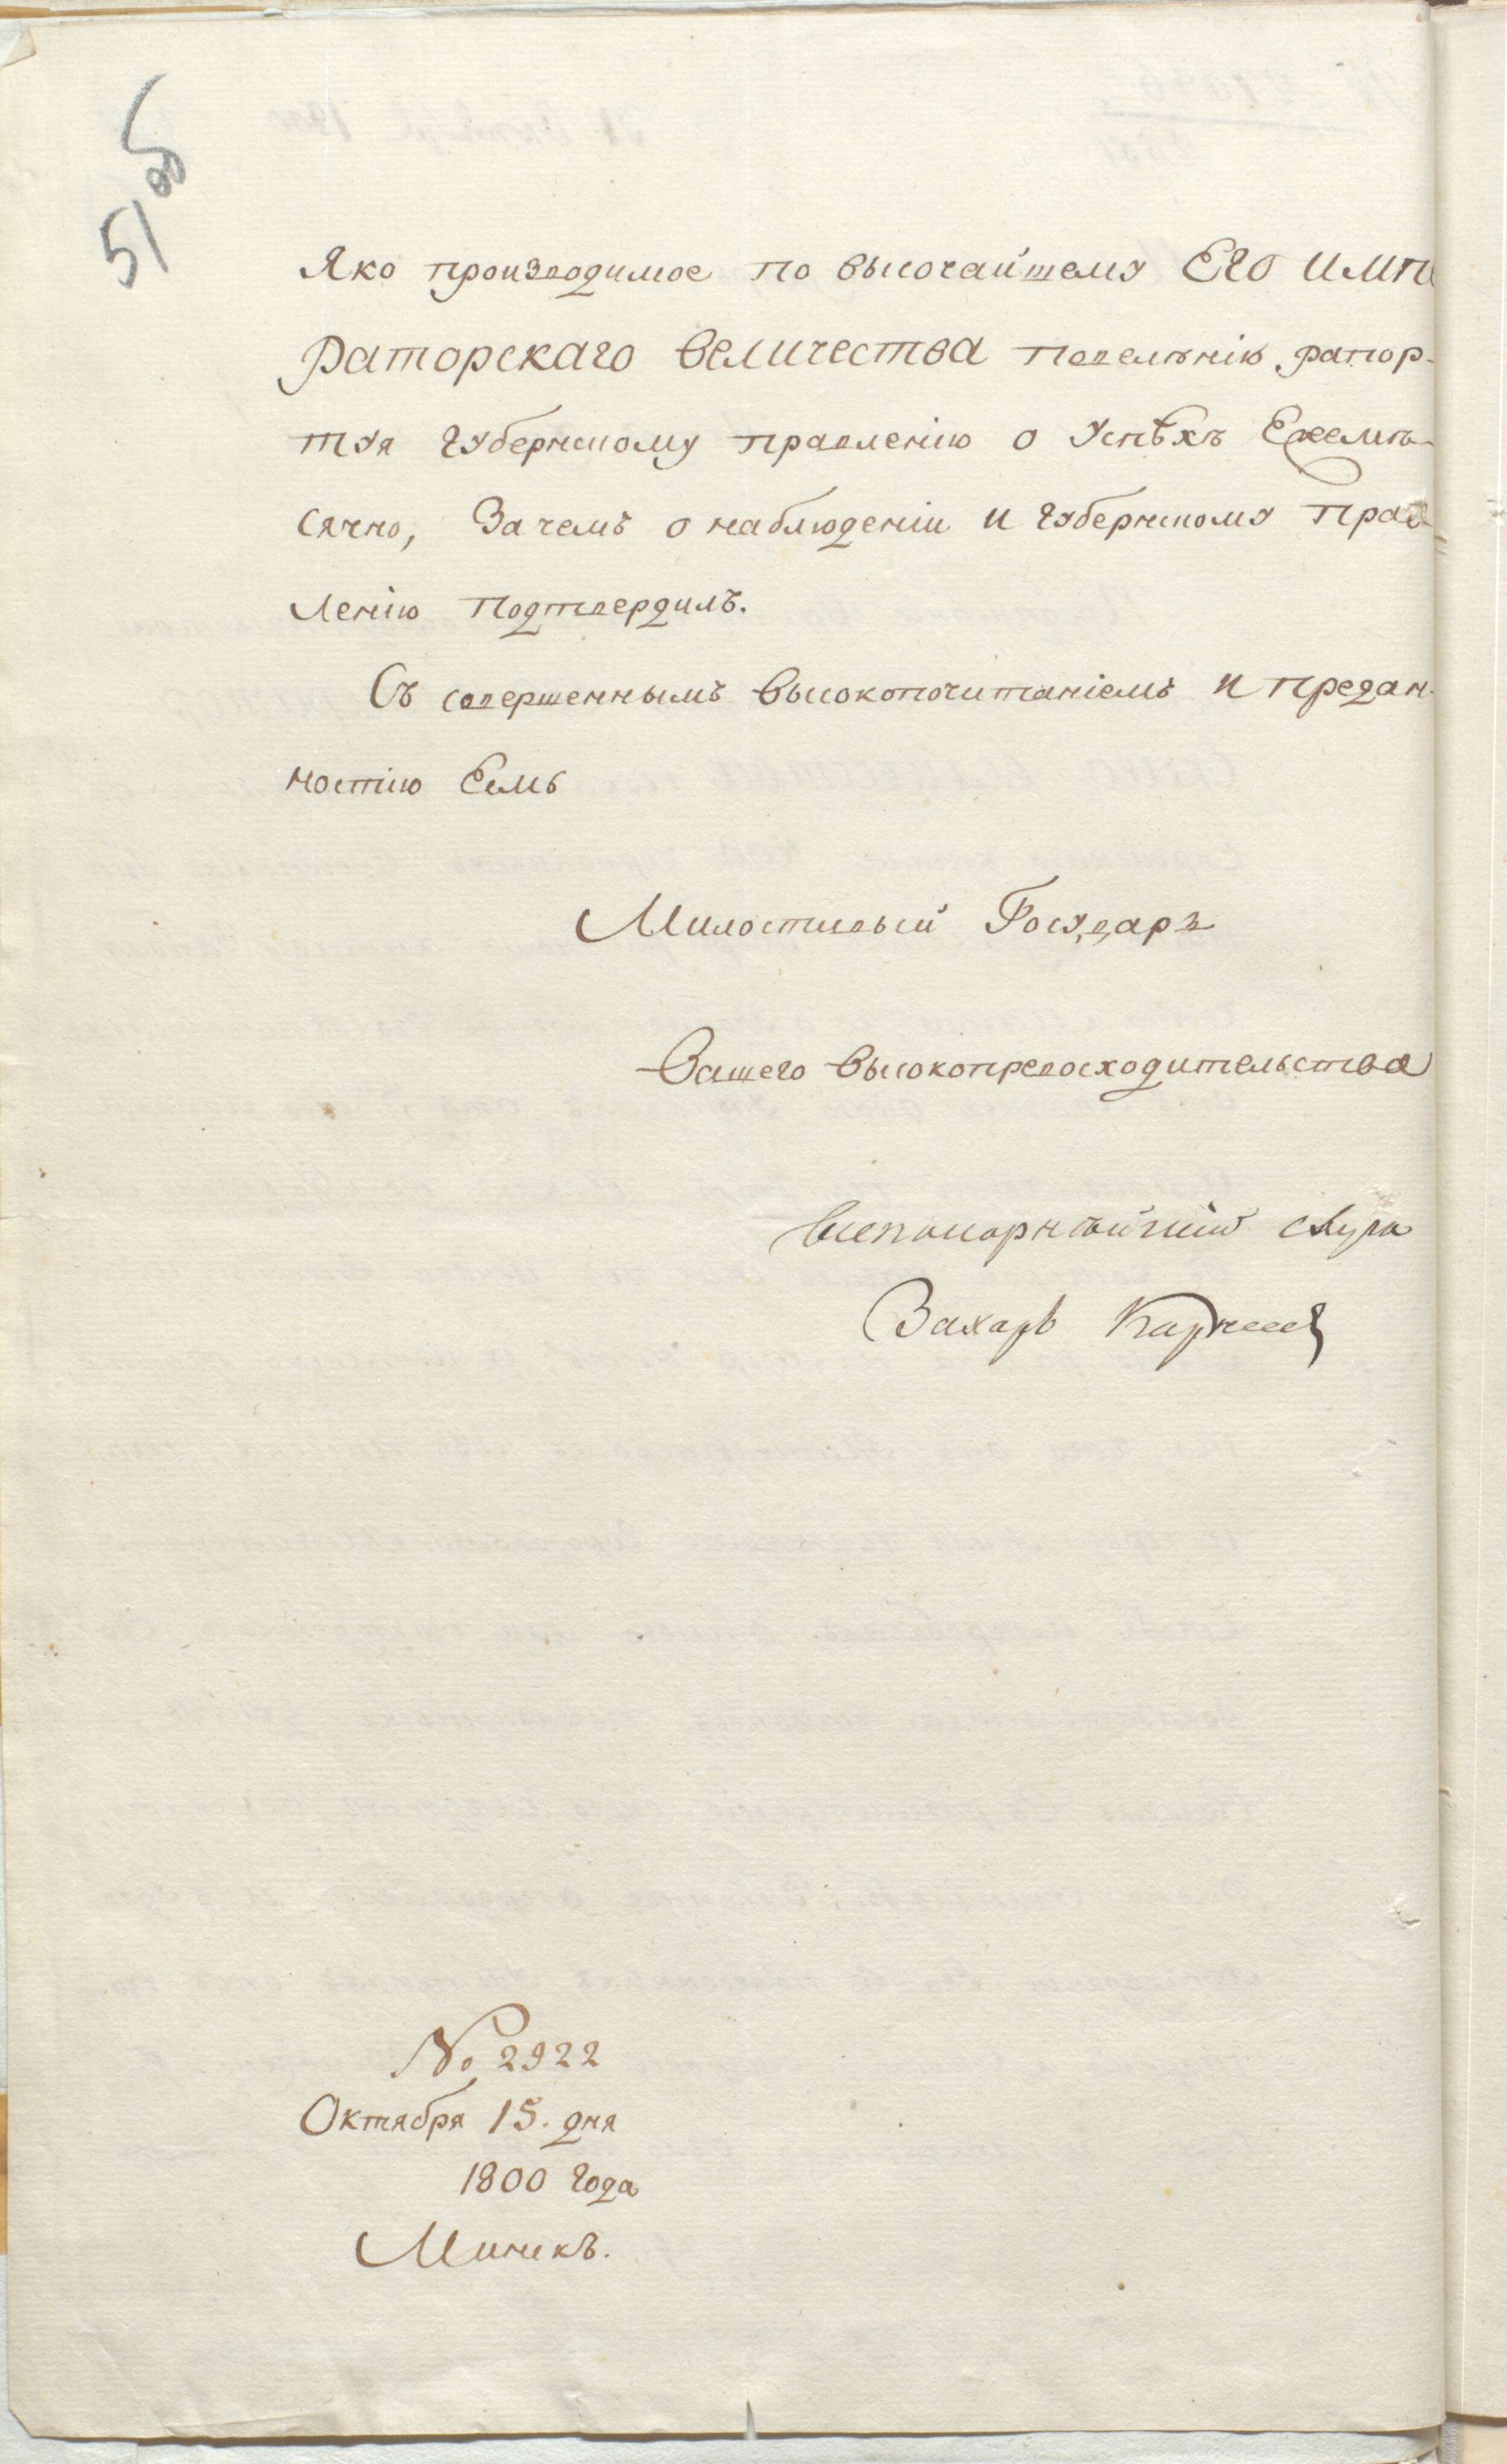 51 об
Яко производимое по высочайшему Его импе
раторскаго величества повелѣнiю, рапор-
туя губернскому правленiю о успѣхъ Ежемѣ-
сячно, Зачемъ о наблюденiи и губернскому прав
ленiю подтвердилъ.
Съ совершеннымъ высокопочитанiемъ и предан-
ностiю Есмь
Милостивый Государь
Вашего высокопревосходительства
всепокорнѣйшiй слуга
Захаръ Карнеев
№ 2922
Октября 15. дня
1800 года
Минскъ.